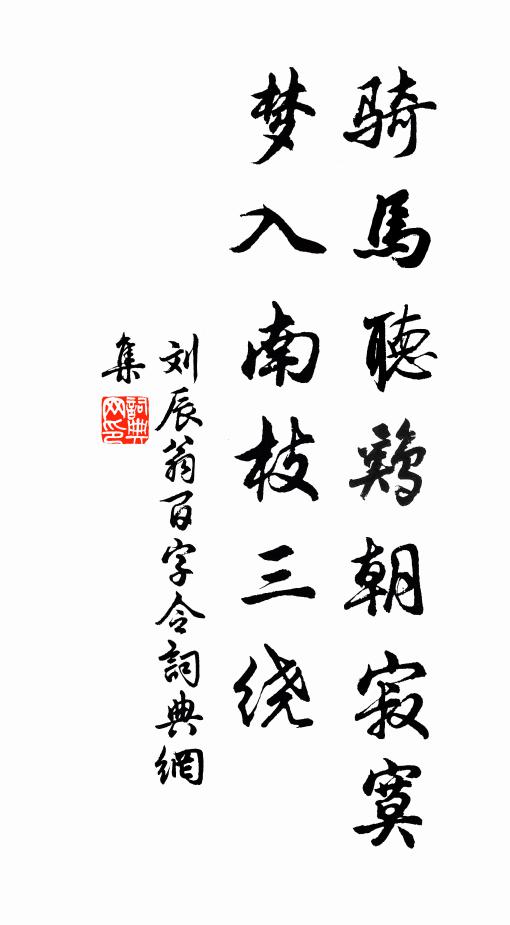 骑馬聽鷄朝寂寞
梦入南枝三绕
刘辰翁百字令詞典網
集
詞典
网印